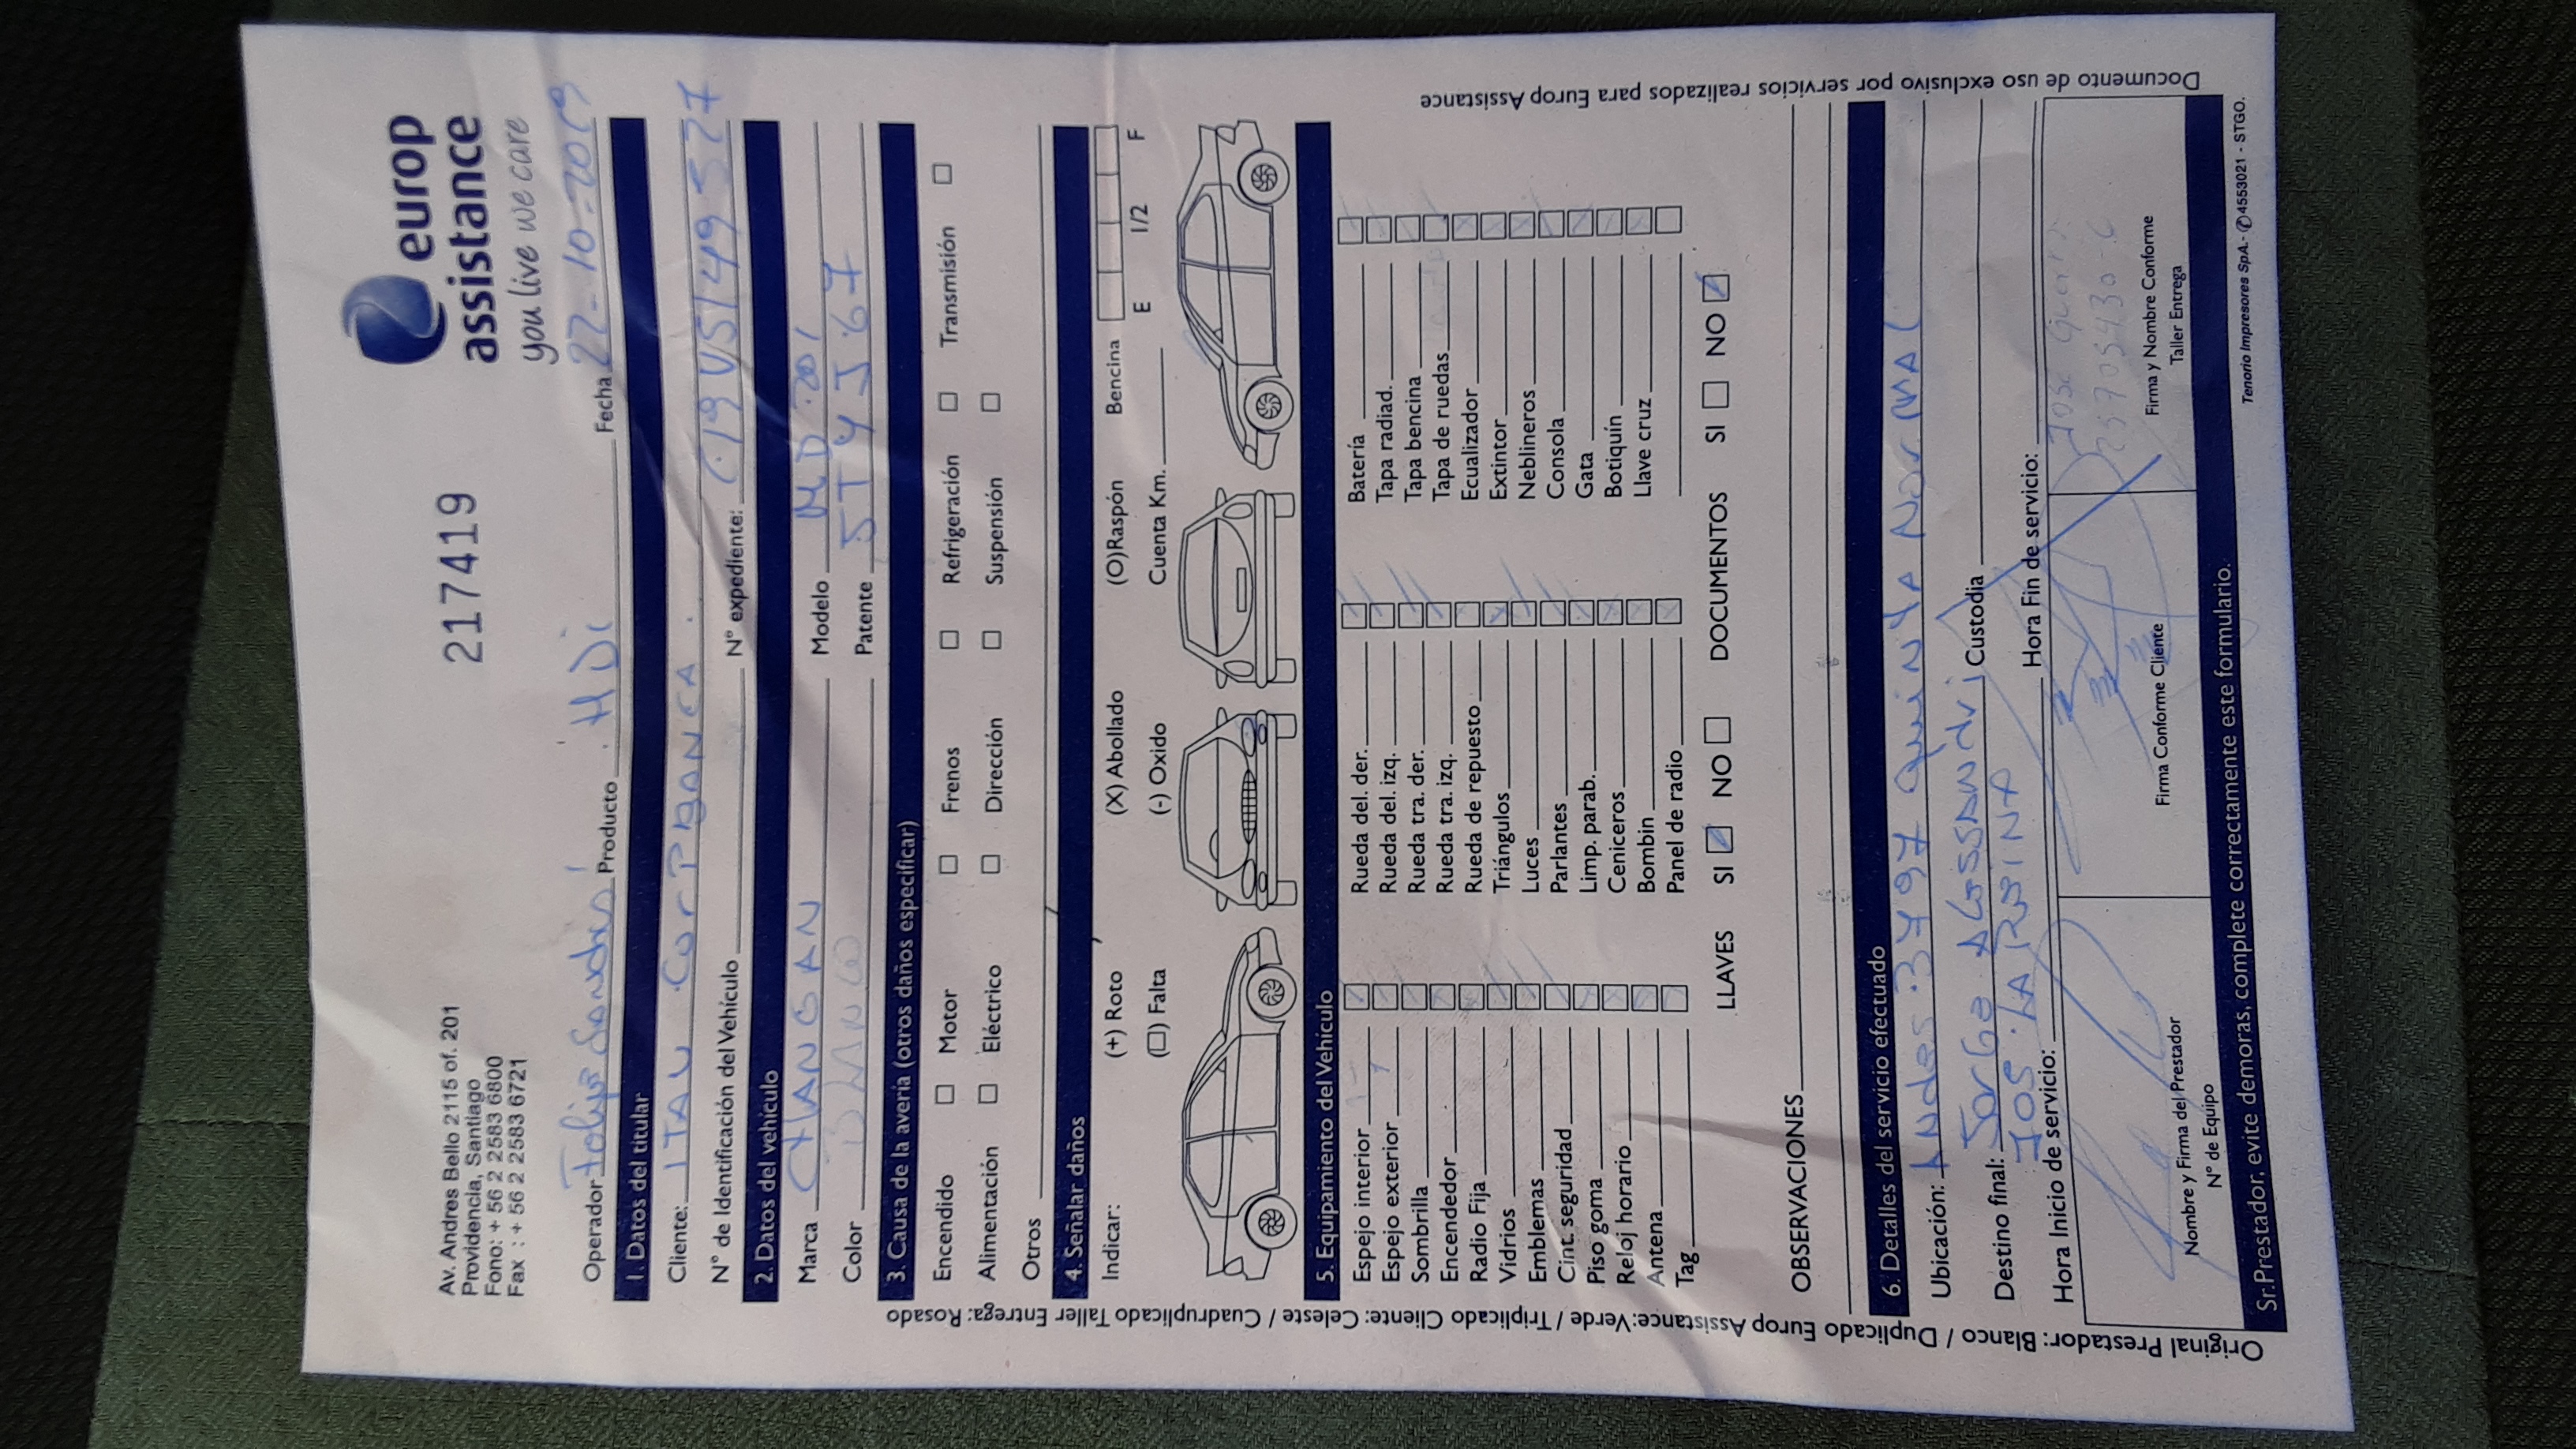 Av. Andres Bello 2115 of. 201
Providencia, Santiago
Fono: + 56 2 2583 6800
Fax : + 56 2 2583 6721
217419
europ
assistance
you live we care
Operador Felipe Sanches Producto HDI Fecha 22-10-2019
1. Datos del titular
Cliente: ITAU CorPBANCA.
N° de Identificación del Vehículo N° expediente:
2. Datos del vehículo
Marca CHANGAN Modelo MD 201
Color BLANCO Patente
3. Causa de la avería (otros daños especificar)
Encendido Motor Frenos Refrigeración Transmisión
Alimentación Eléctrico Dirección Suspensión
Otros
4. Señalar daños
Indicar: (+) Roto (X) Abollado (O)Raspón Bencina
E 1/2 F
(□) Falta (-) Oxido Cuenta Km.
5. Equipamiento del Vehículo
Espejo interior Rueda del. der. Batería
Espejo exterior Rueda del. izq. Tapa radiad.
Sombrilla Rueda tra. der. Tapa bencina
Encendedor Rueda tra. izq. Tapa de ruedas
Radio Fija Rueda de repuesto Ecualizador
Vidrios Triángulos Extintor
Emblemas Luces Neblineros
Cint. seguridad Parlantes Consola
Piso goma Limp. parab. Gata
Reloj horario Ceniceros Botiquín
Antena Bombin Llave cruz
Tag Panel de radio
LLAVES SI NO DOCUMENTOS SI NO
OBSERVACIONES
6. Detalles del servicio efectuado
Ubicación: Andes 3497 Quinta Normal
Destino final: Jorge Alessandri Custodia
LA REINA
Hora Inicio de servicio: Hora Fin de servicio:
Nombre y Firma del Prestador
N° de Equipo
Firma Conforme Cliente
Firma y Nombre Conforme
Taller Entrega
Sr. Prestador, evite demoras, complete correctamente este formulario.
Tenorio Impresores SpA.- ✆4553021 - STGO.
Original Prestador: Blanco / Duplicado Europ Assistance: Verde / Triplicado Cliente: Celeste / Cuadruplicado Taller Entrega: Rosado
Documento de uso exclusivo por servicios realizados para Europ Assistance